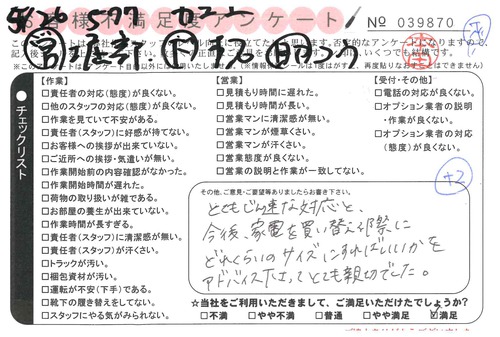 お客様不満足度アンケート
No 039870
【作業】
□責任者の対応(態度)が良くない。
□他のスタッフの対応(態度)が良くない。
□作業を見ていて不安がある。
□責任者(スタッフ)に好感が持てない。
□お客様への挨拶が出来ていない。
□ご近所への挨拶・気遣いが無い。
□作業開始前の内容確認がなかった。
□作業開始時間が遅れた。
□荷物の取り扱いが雑である。
□お部屋の養生が出来ていない。
□作業時間が長すぎる。
□責任者(スタッフ)に清潔感が無い。
□責任者(スタッフ)が汗さい。
□トラックが汚い。
□梱包資材が汚い。
□運転が不安(下手)である。
□靴下の履き替えをしてない。
□スタッフにやる気がみられない。
【営業】
□見積もり時間に遅れた。
□見積もり時間が長い。
□営業マンに清潔感が無い。
□営業マンが煙草くさい。
□営業マンが汗くさい。
□営業態度が良くない。
□営業の説明と作業が一致してない。
【受付・その他】
□電話の対応が良くない。
□オプション業者の説明
・作業が良くない。
□オプション業者の対応
(態度)が良くない。
●チェックリスト
その他、ご意見・ご要望等ありましたらお書き下さい。
とても迅速な対応と、
今後、家電を買い替える際に
どれくらいのサイズにすればいいかを
アドバイス下さってとても親切でした。
☆当社をご利用いただきまして、ご満足いただけたでしょうか?
□不満 □やや不満 □普通 □やや満足 ☑満足